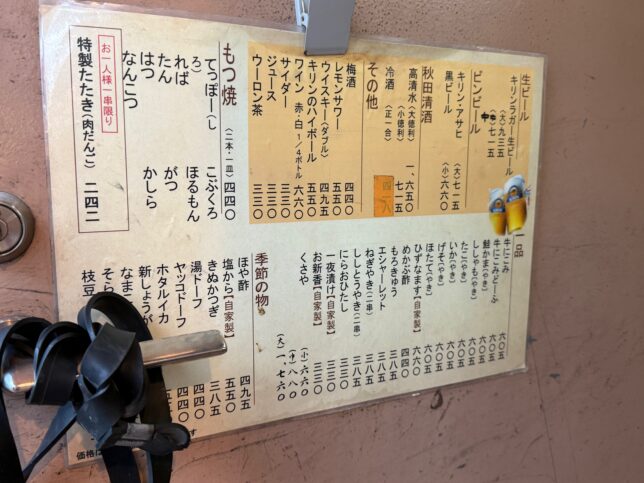 生ビール
キリンラガー生ビール
(大)九三五
七一五
ビンビール
キリン・アサヒ (大)七一五
黒ビール (小)六六〇
秋田清酒
高清水(大徳利) 一、六五〇
(小徳利) 七一五
冷酒 (正一合)
その他
梅酒 四四〇
レモンサワー 五五〇
ウイスキー(ダブル) 四九五
キリンのハイボール 五五〇
ワイン 赤・白1/4ボトル 六六〇
サイダー 三三〇
ジュース 三三〇
ウーロン茶 三三〇
もつ焼 (二本・一皿) 四四〇
てっぽー(しろ) こぶくろ
ればー ほるもん
たん がつ
はつ かしら
なんこつ
お一人様一串限り
特製たたき(肉だんご) 二四二
一品
牛にこみ 六〇五
牛にこみどーふ 六〇五
鮭かま(やき) 六〇五
ししゃも(やき) 六〇五
たこ(やき) 六〇五
いか(やき) 六〇五
げそ(やき) 六〇五
ほたて(やき) 六〇五
ひずなます【自家製】 六六〇
めかぶ酢 四四〇
もろきゅう 三八五
エシャーレット 三八五
ねぎやき(二串) 三八五
ししとうやき(二串) 三八五
にらおひたし 三三〇
一夜漬け【自家製】 三三〇
お新香【自家製】 三三〇
くさや (小)六六〇
(中)八八〇
(大)一、七六〇
季節の物
ほや酢 四九五
塩から【自家製】 五五〇
きぬかつぎ 三八五
湯ドーフ 四四〇
ヤッコドーフ 四四〇
ホタルイカ
新しょうが
なまこ
そら
枝豆
価格は